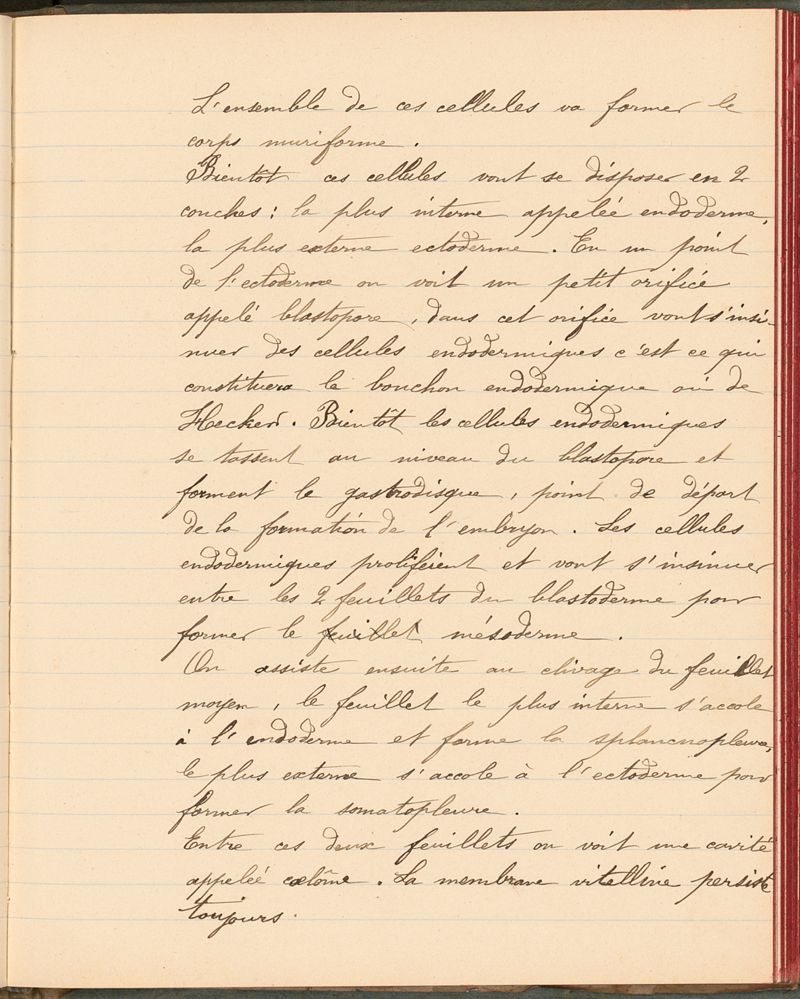 L'ensemble de ces cellules va former le
corps muriforme.
Bientôt ces cellules vont se disposer en 2
couches : la plus interne appelée endoderme,
la plus externe ectoderme. En un point
de l'ectoderme on voit un petit orifice
appelé blastopore, dans cet orifice vont s'insi-
nuer des cellules endodermiques c'est ce qui
constituera le bouchon endodermique où de
Hecker. Bientôt les cellules endodermiques
se tassent au niveau du blastopore et
forment le gastrodisque, point de départ
de la formation de l'embryon. Les cellules
endodermiques prolifèrent et vont s'insinuer
entre les 2 feuillets du blastoderme pour
former le feuillet mésoderme.
On assiste ensuite au clivage du feuillet
moyen, le feuillet le plus interne s'accole
à l'endoderme et forme la splancnopleure,
le plus externe s'accole à l'ectoderme pour
former la somatopleure.
Entre ces deux feuillets on voit une cavité
appelée cœlôme. La membrane vitelline persiste
toujours.